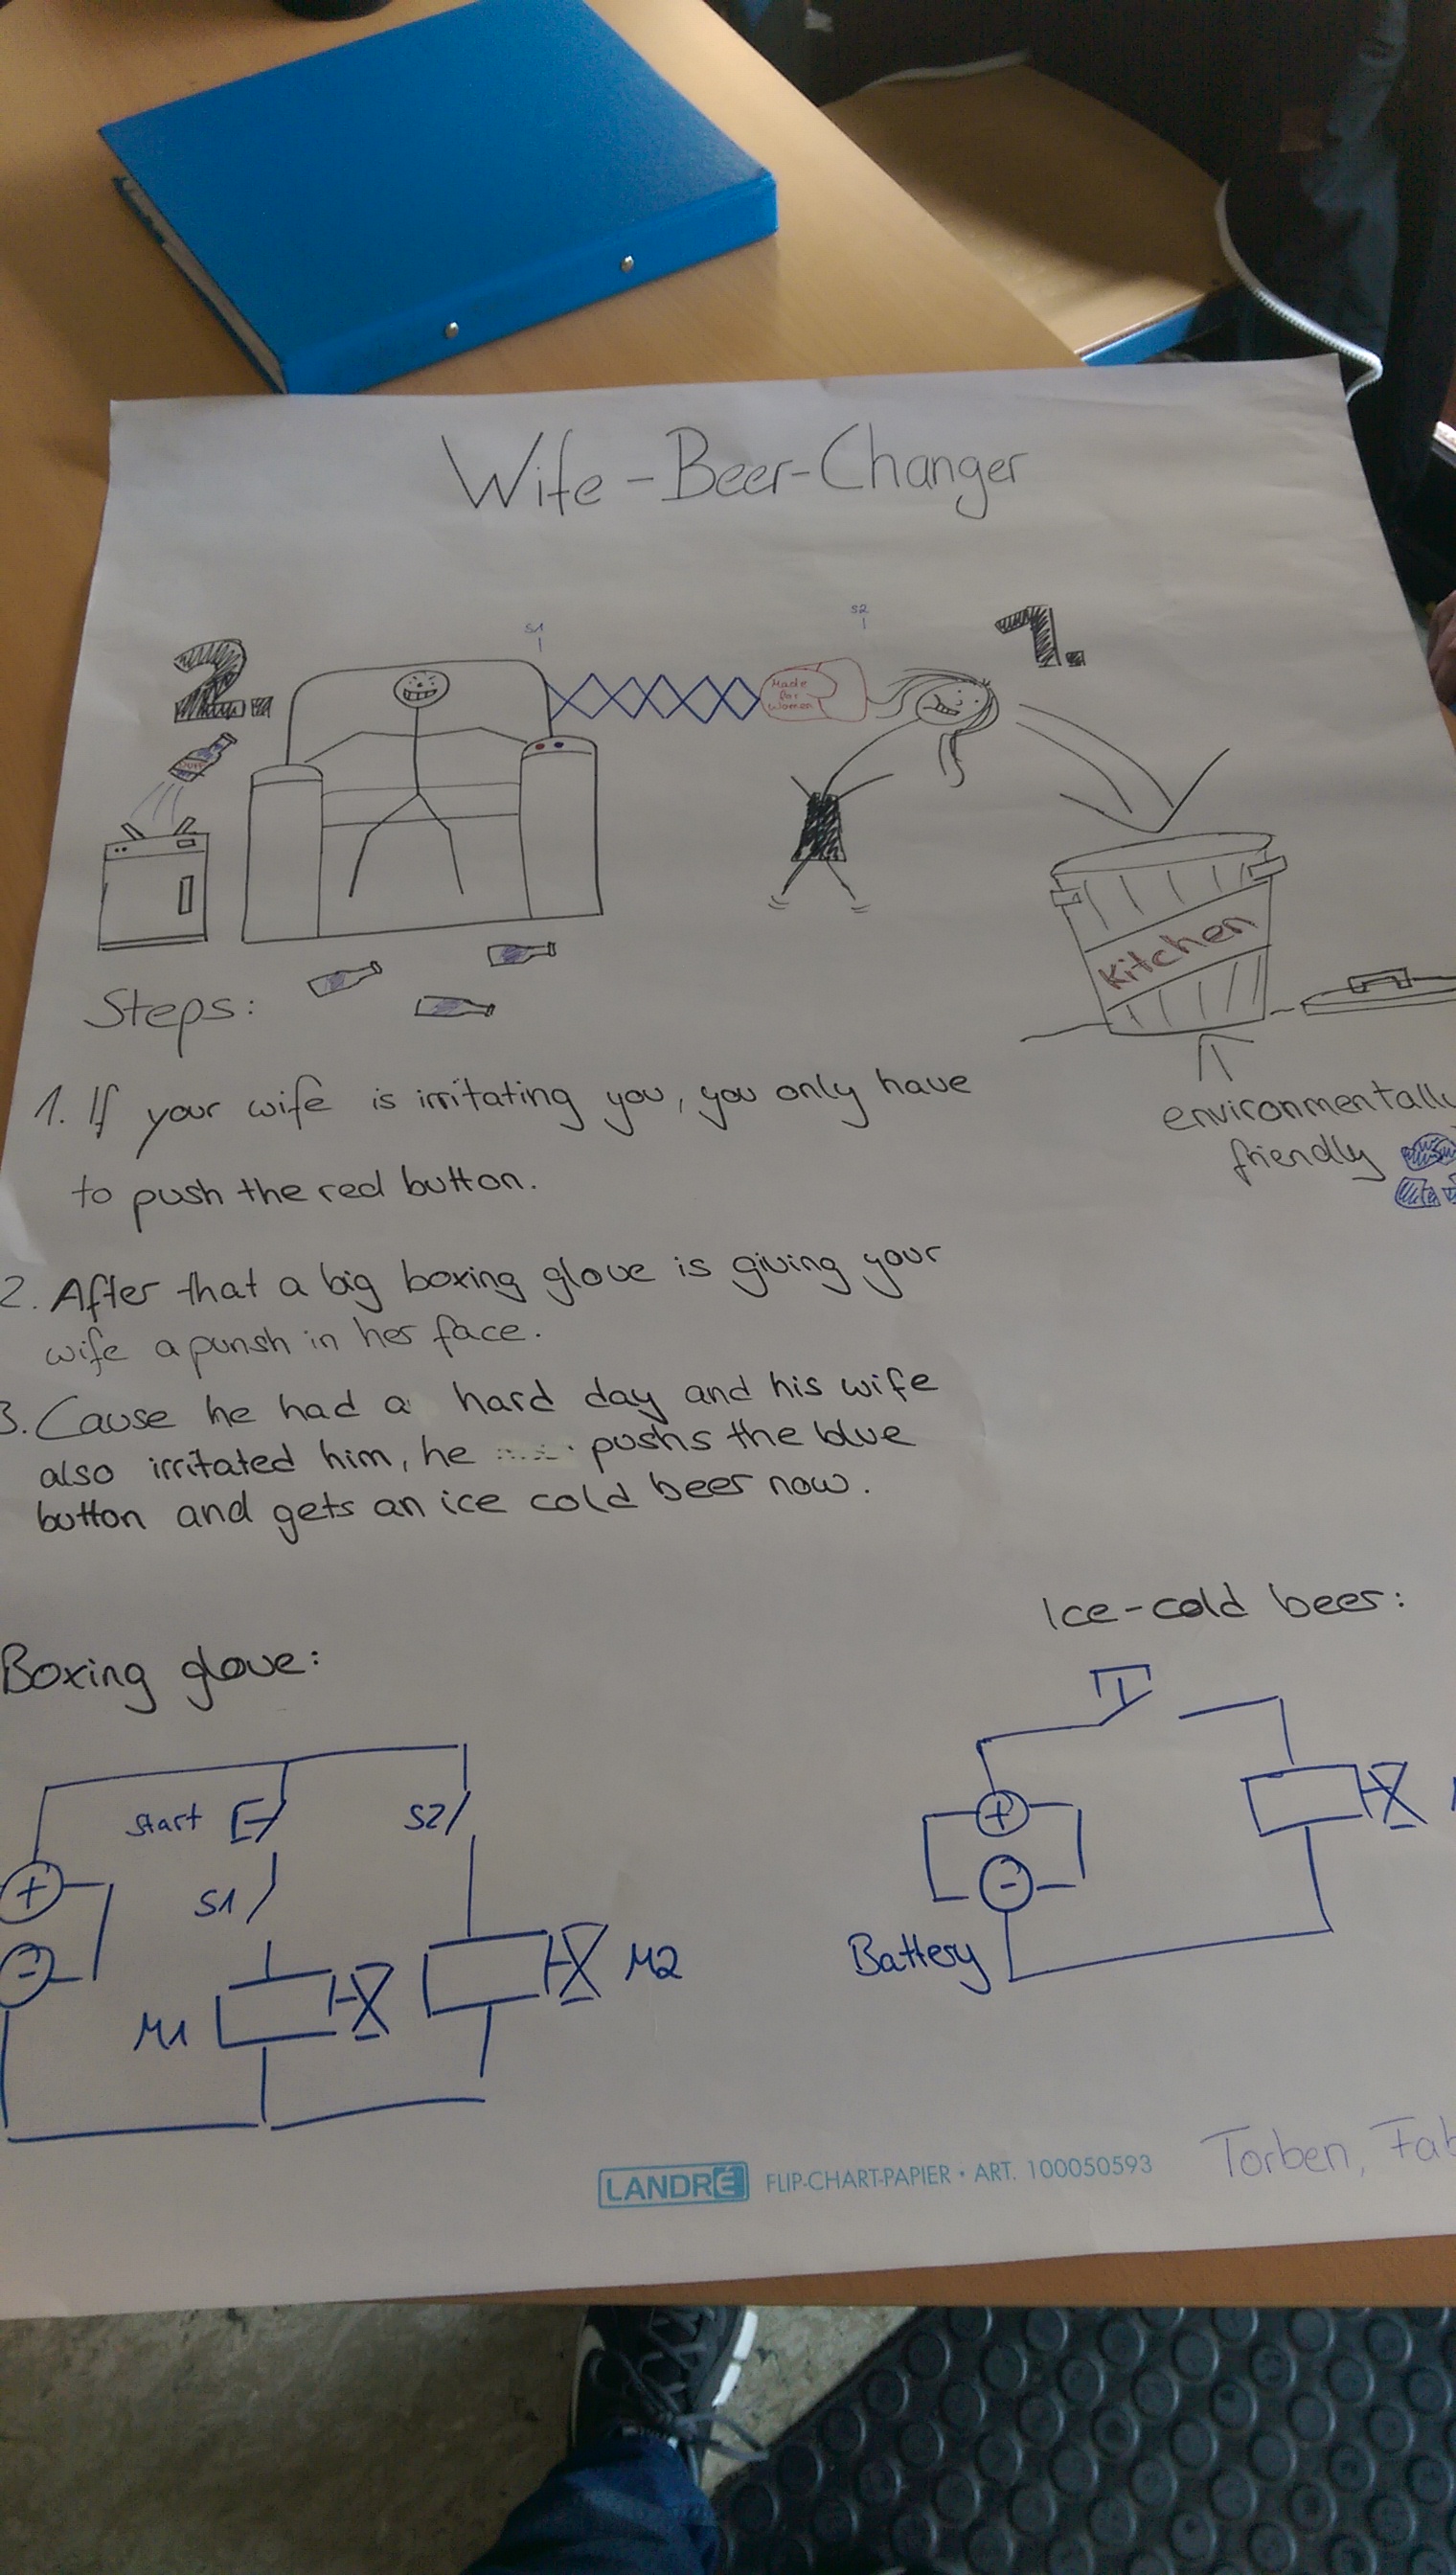 Wife-Beer-Changer
S1
S2
2.
1.
Made
for
Women
DUFF
Kitchen
Steps:
environmentally
friendly
1. If your wife is irritating you, you only have
to push the red button.
2. After that a big boxing glove is giving your
wife a punsh in her face.
3. Cause he had a hard day and his wife
also irritated him, he pushs the blue
button and gets an ice cold beer now.
Ice-cold beer:
Boxing glove:
Start
S2
S1
+
-
M1
M2
+
-
Battery
LANDRÉ FLIP-CHART-PAPIER • ART. 100050593
Torben, Fab